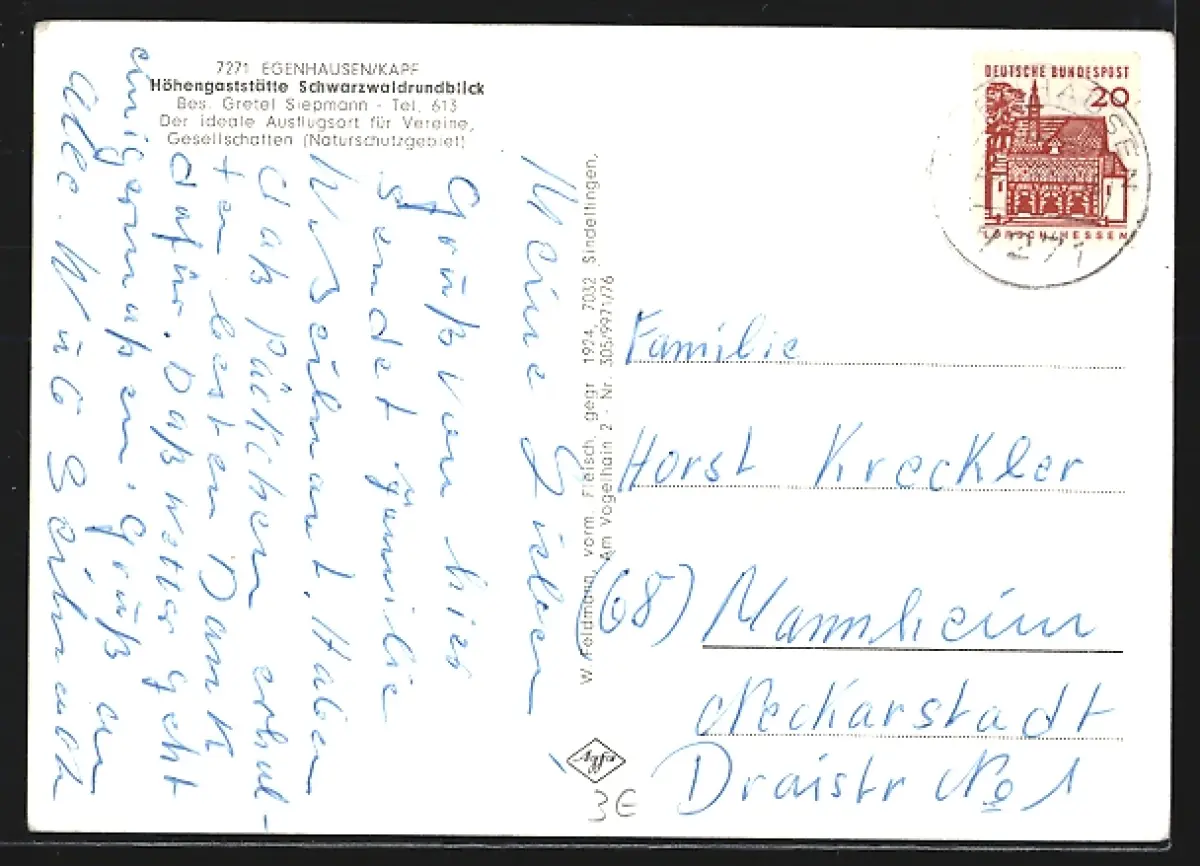 7271 EGENHAUSEN/KAPF
Höhengaststätte Schwarzwaldrundblick
Bes. Gretel Siepmann - Tel. 613
Der ideale Ausflugsort für Vereine,
Gesellschaften (Naturschutzgebiet)
Meine Lieben,
Gruß von hier
sendet Familie
Haben
daß Päckchen erhal-
ten besten Dank
dafür. Daß Wetter geht
einigermaßen. Gruß an
alle.
W. Feldmann, vorm. Fleisch. gegr. 1924, 7032 Sindelfingen,
Am Vogelhain 2 - Nr. 305/9971/76
DEUTSCHE BUNDESPOST
20
LORSCH/HESSEN
7271
Familie
Horst Kreckler
(68) Mannheim
Neckarstadt
Draistr No 1
Agfa
3E